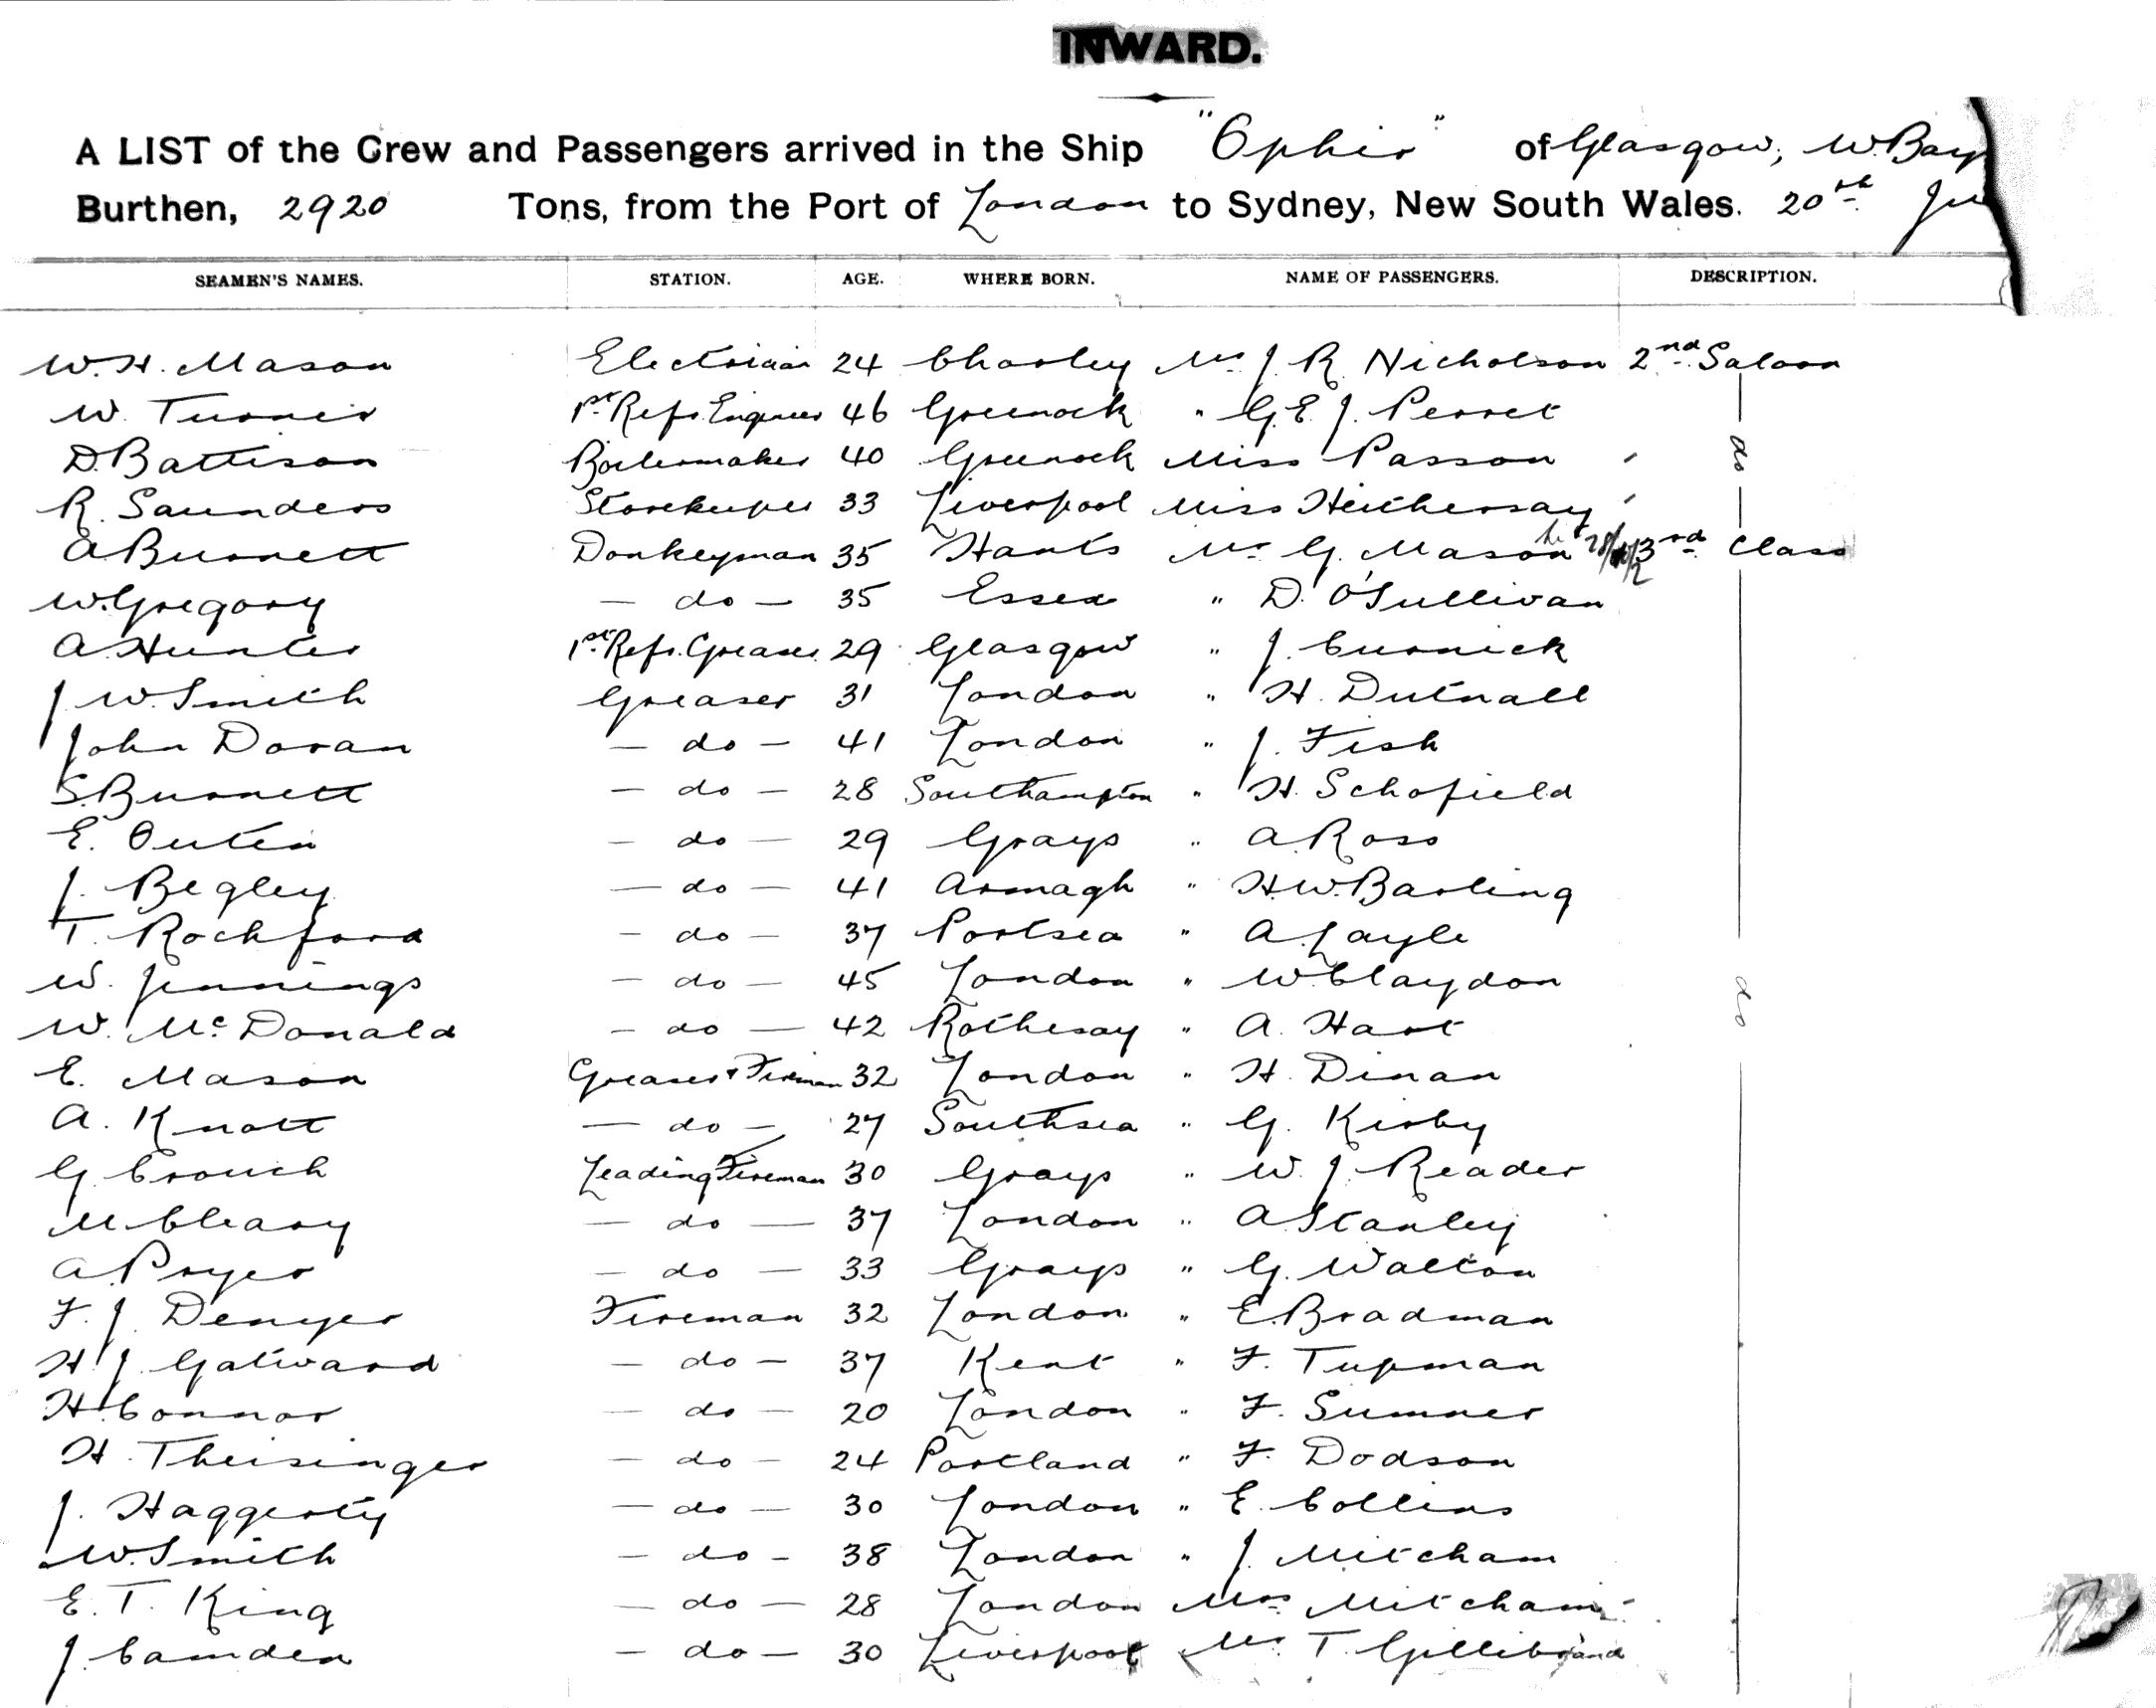 INWARD.
A LIST of the Crew and Passengers arrived in the Ship "Ophir" of Glasgow, W. Bay
Burthen, 2920 Tons, from the Port of London to Sydney, New South Wales. 20th Ju
SEAMEN'S NAMES. STATION. AGE. WHERE BORN. NAME OF PASSENGERS. DESCRIPTION.
W. H. Mason Electrician 24 Chorley Mr J. R. Nicholson 2nd Saloon
W. Turner 1st Refr. Engineer 46 Greenock " G. E. J. Perret
D. Battison Boilermaker 40 Greenock Miss Passon ' do
R. Saunders Storekeeper 33 Liverpool Miss Heithersay '
A Burnett Donkeyman 35 Hants Mr G. Mason 3rd Class
W. Gregory — do — 35 Essex " D. O'Sullivan
A. Hunter 1st Refr. Greaser 29 Glasgow " J. Curnick
J. W. Smith Greaser 31 London " H. Dutnall
John Doran — do — 41 London " J. Fish
S. Burnett — do — 28 Southampton " H. Schofield
E. Outen — do — 29 Grays " A. Ross
J. Begley — do — 41 Armagh " H. W. Barling
T. Rochford — do — 37 Portsea " A. Layle
W. Jennings — do — 45 London " W. Claydon do
W. McDonald — do — 42 Rothesay " A. Hart
E. Mason Greaser & Fireman 32 London " H. Dinan
A. Knott — do — 27 Southsea " G. Kirby
G. Crouch Leading Fireman 30 Grays " W. J. Reader
M. Cleary — do — 37 London " A. Stanley
A. Pryer — do — 33 Grays " G. Walton
F. J. Denyer Fireman 32 London " E. Bradman
H. J. Gatward — do — 37 Kent " F. Tupman
H. Connor — do — 20 London " F. Sumner
H. Theisinger — do — 24 Portland " F. Dodson
J. Haggerty — do — 30 London " E. Collins
W. Smith — do — 38 London " J. Mitcham
E. T. King — do — 28 London Mrs Mitcham
J. Camden — do — 30 Liverpool Mr T. Gillibrand